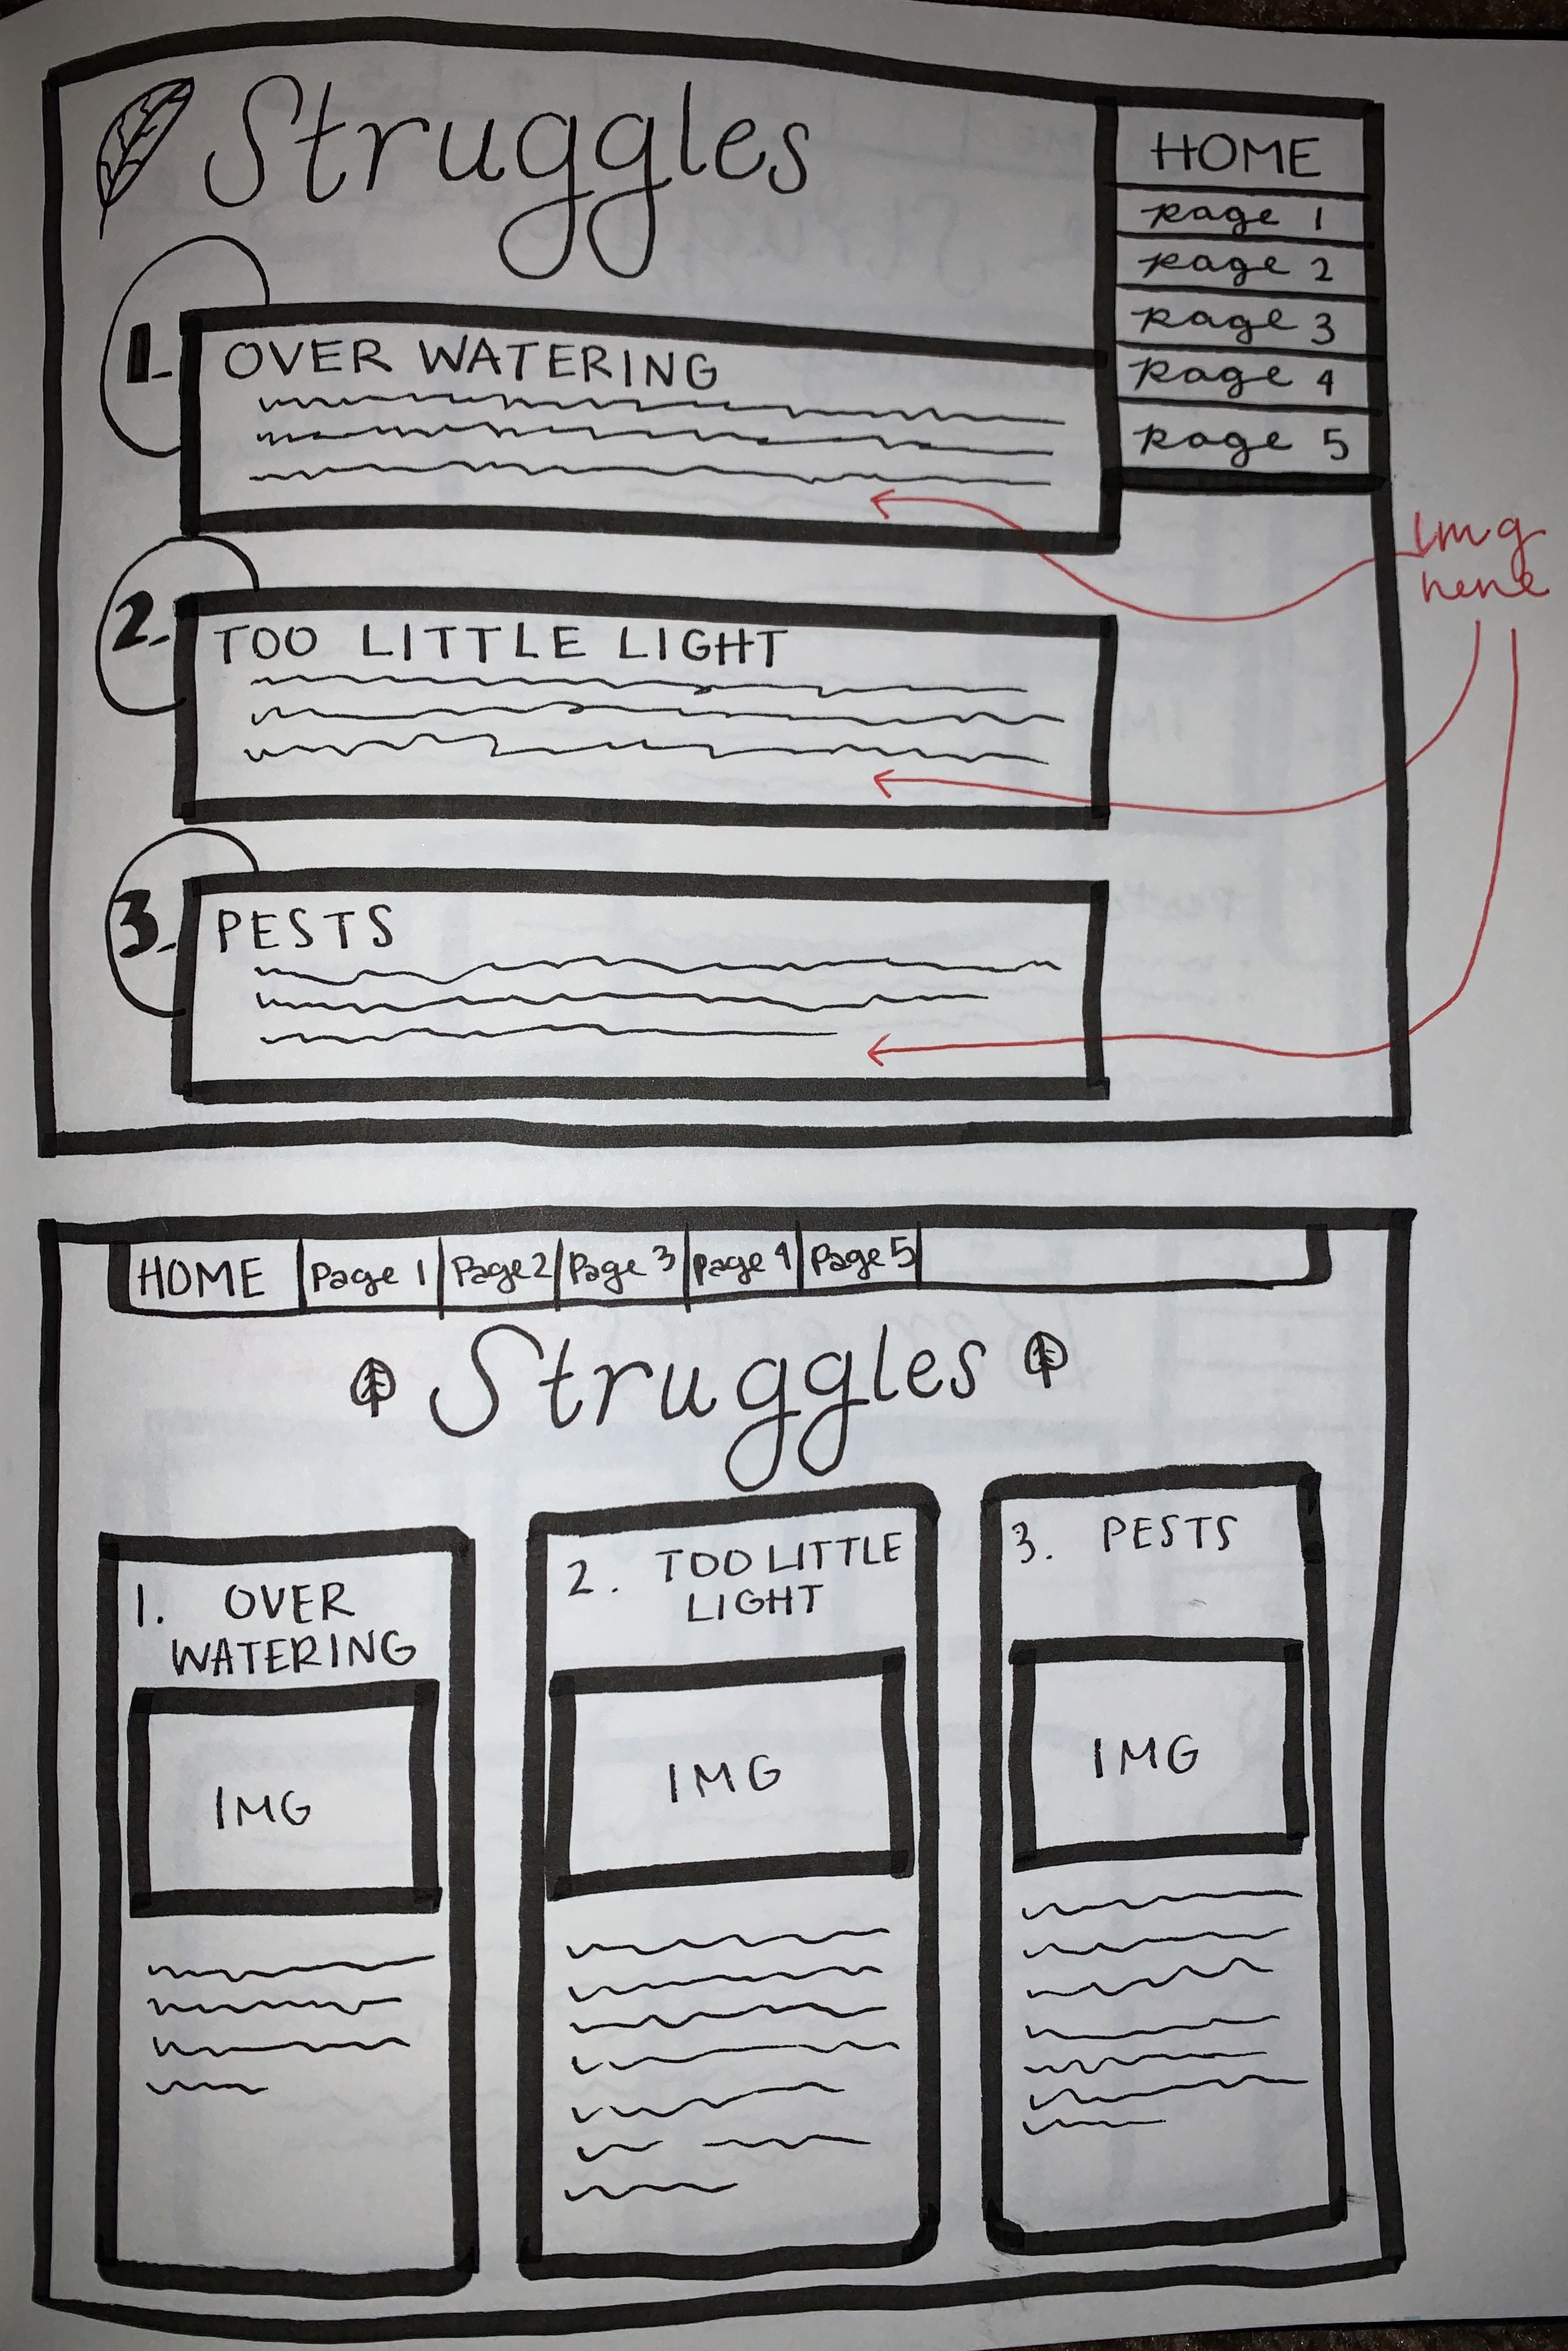 Struggles
HOME
page 1
page 2
page 3
page 4
page 5
1.
OVER WATERING
2.
TOO LITTLE LIGHT
3.
PESTS
img
here
HOME
Page 1
Page 2
Page 3
page 4
Page 5
Struggles
1. OVER
WATERING
IMG
2. TOO LITTLE
LIGHT
IMG
3. PESTS
IMG